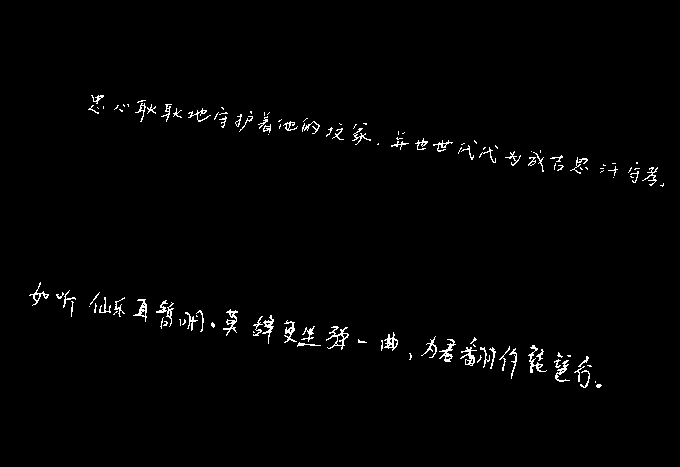 忠心耿耿地守护着他的坟冢，并也世代代为成吉思汗守孝，
如听仙乐耳暂明。莫辞更坐弹一曲，为君翻作琵琶行。